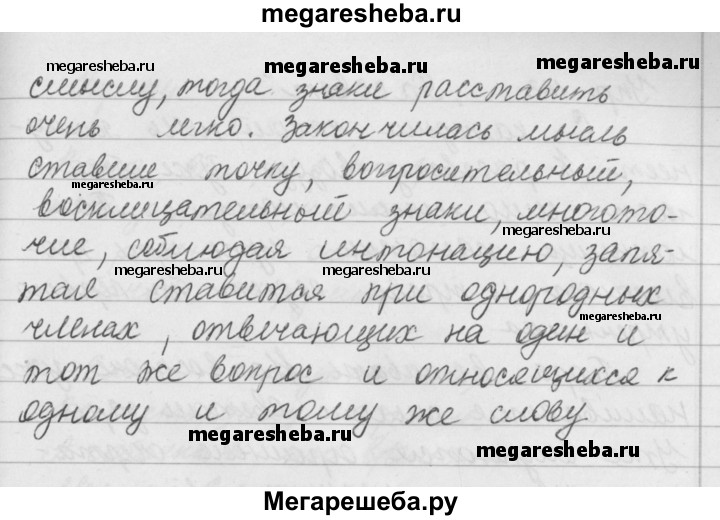 megaresheba.ru
megaresheba.ru megaresheba.ru megaresheba.ru
смыслу, тогда знаки расставить
очень легко. Закончилась мысль
ставие точку, вопросительный,
megaresheba.ru
восклицательный знаки, многото-
megaresheba.ru
чие, соблюдая интонацию, запя-
megaresheba.ru megaresheba.ru
тая ставится при однородных
megaresheba.ru
членах, отвечающих на один и
тот же вопрос и относящихся к
одному и тому же слову
megaresheba.ru megaresheba.ru
Мегарешеба.ру